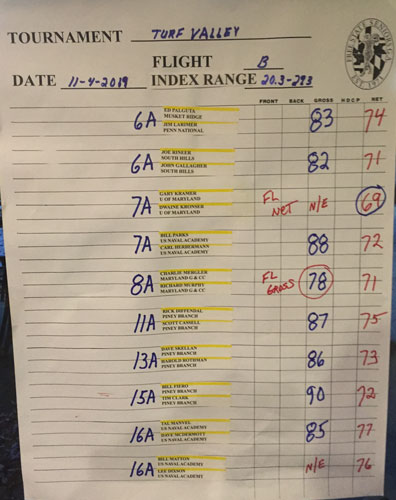 TOURNAMENT TURF VALLEY
FLIGHT B
DATE 11-4-2019 INDEX RANGE 20.3-293
FRONT BACK GROSS HDCP NET
6A ED PALGUTA 83 74
MUSKET RIDGE
JIM LARIMER
PENN NATIONAL
6A JOE RINEER 82 71
SOUTH HILLS
JOHN GALLAGHER
SOUTH HILLS
7A GARY KRAMER FL NET N/E 69
U OF MARYLAND
DWAINE KRONSER
U OF MARYLAND
7A BILL PARKS 88 72
US NAVAL ACADEMY
CARL HERHERMANN
US NAVAL ACADEMY
8A CHARLIE MERGLER FL GROSS 78 71
MARYLAND G & CC
RICHARD MURPHY
MARYLAND G & CC
11A RICK DIFFENDAL 87 75
PINEY BRANCH
SCOTT CASSELL
PINEY BRANCH
13A DAVE SKELLAN 86 73
PINEY BRANCH
HAROLD ROTHMAN
PINEY BRANCH
15A BILL FIERO 90 72
PINEY BRANCH
TIM CLARK
PINEY BRANCH
16A TAL MANVEL 85 77
US NAVAL ACADEMY
DAVE MCDERMOTT
US NAVAL ACADEMY
16A BILL MATTON N/E 76
US NAVAL ACADEMY
LEE DIXSON
US NAVAL ACADEMY